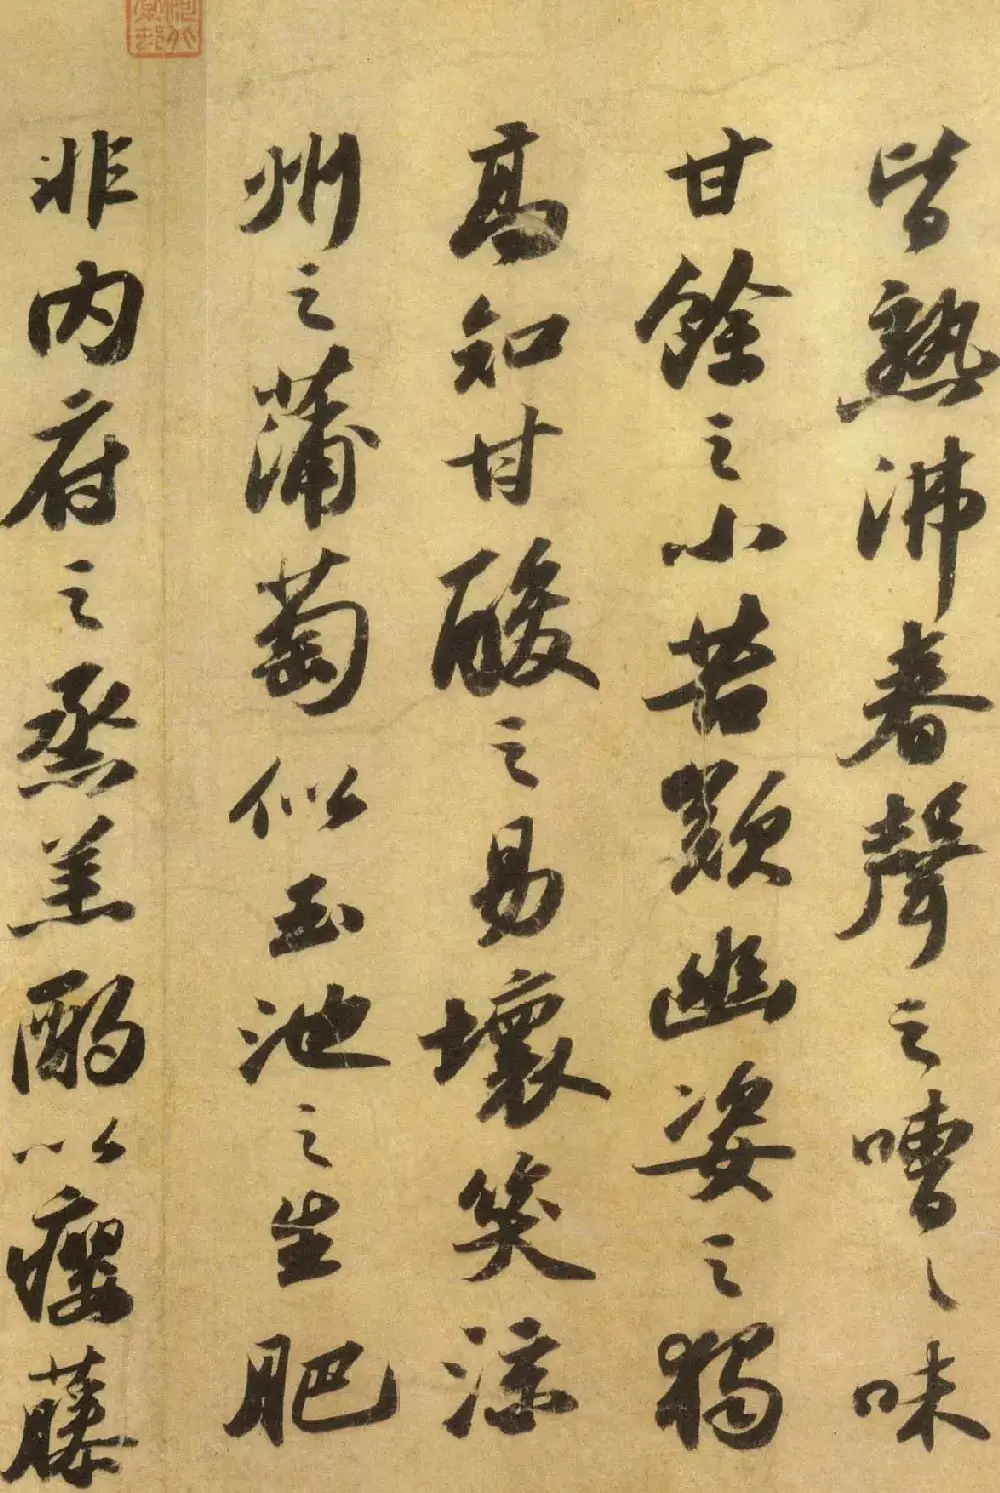 皆熟沸舂聲之嘈〻味
甘餘之小苦歎幽姿之獨
高知甘酸之易壞笑涼
州之蒲萄似玉池之生肥
非内府之烝羔酌以癭藤